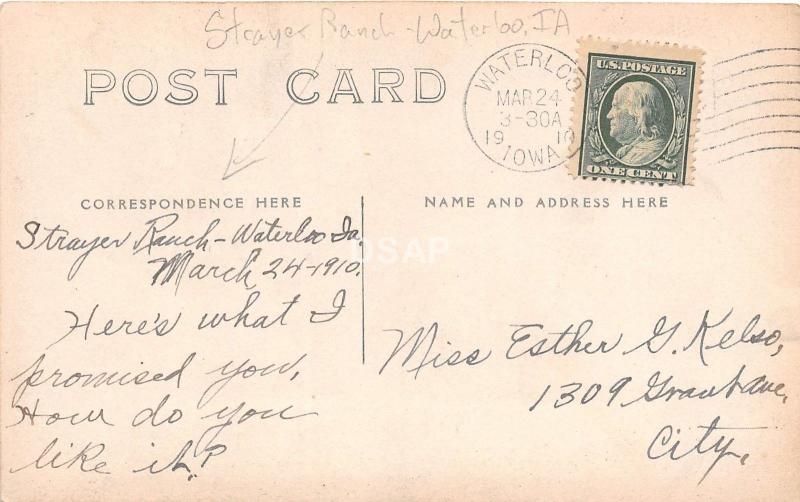 Strayer Ranch - Waterloo, IA
POST CARD
WATERLOO
MAR 24
3-30A
1910
IOWA
U.S. POSTAGE
ONE CENT
CORRESPONDENCE HERE
NAME AND ADDRESS HERE
Strayer Ranch - Waterloo Ia,
March 24-1910.
Here's what I
promised you,
How do you
like it?
DSAP
Miss Esther G. Kelso,
1309 Grant ave,
City,